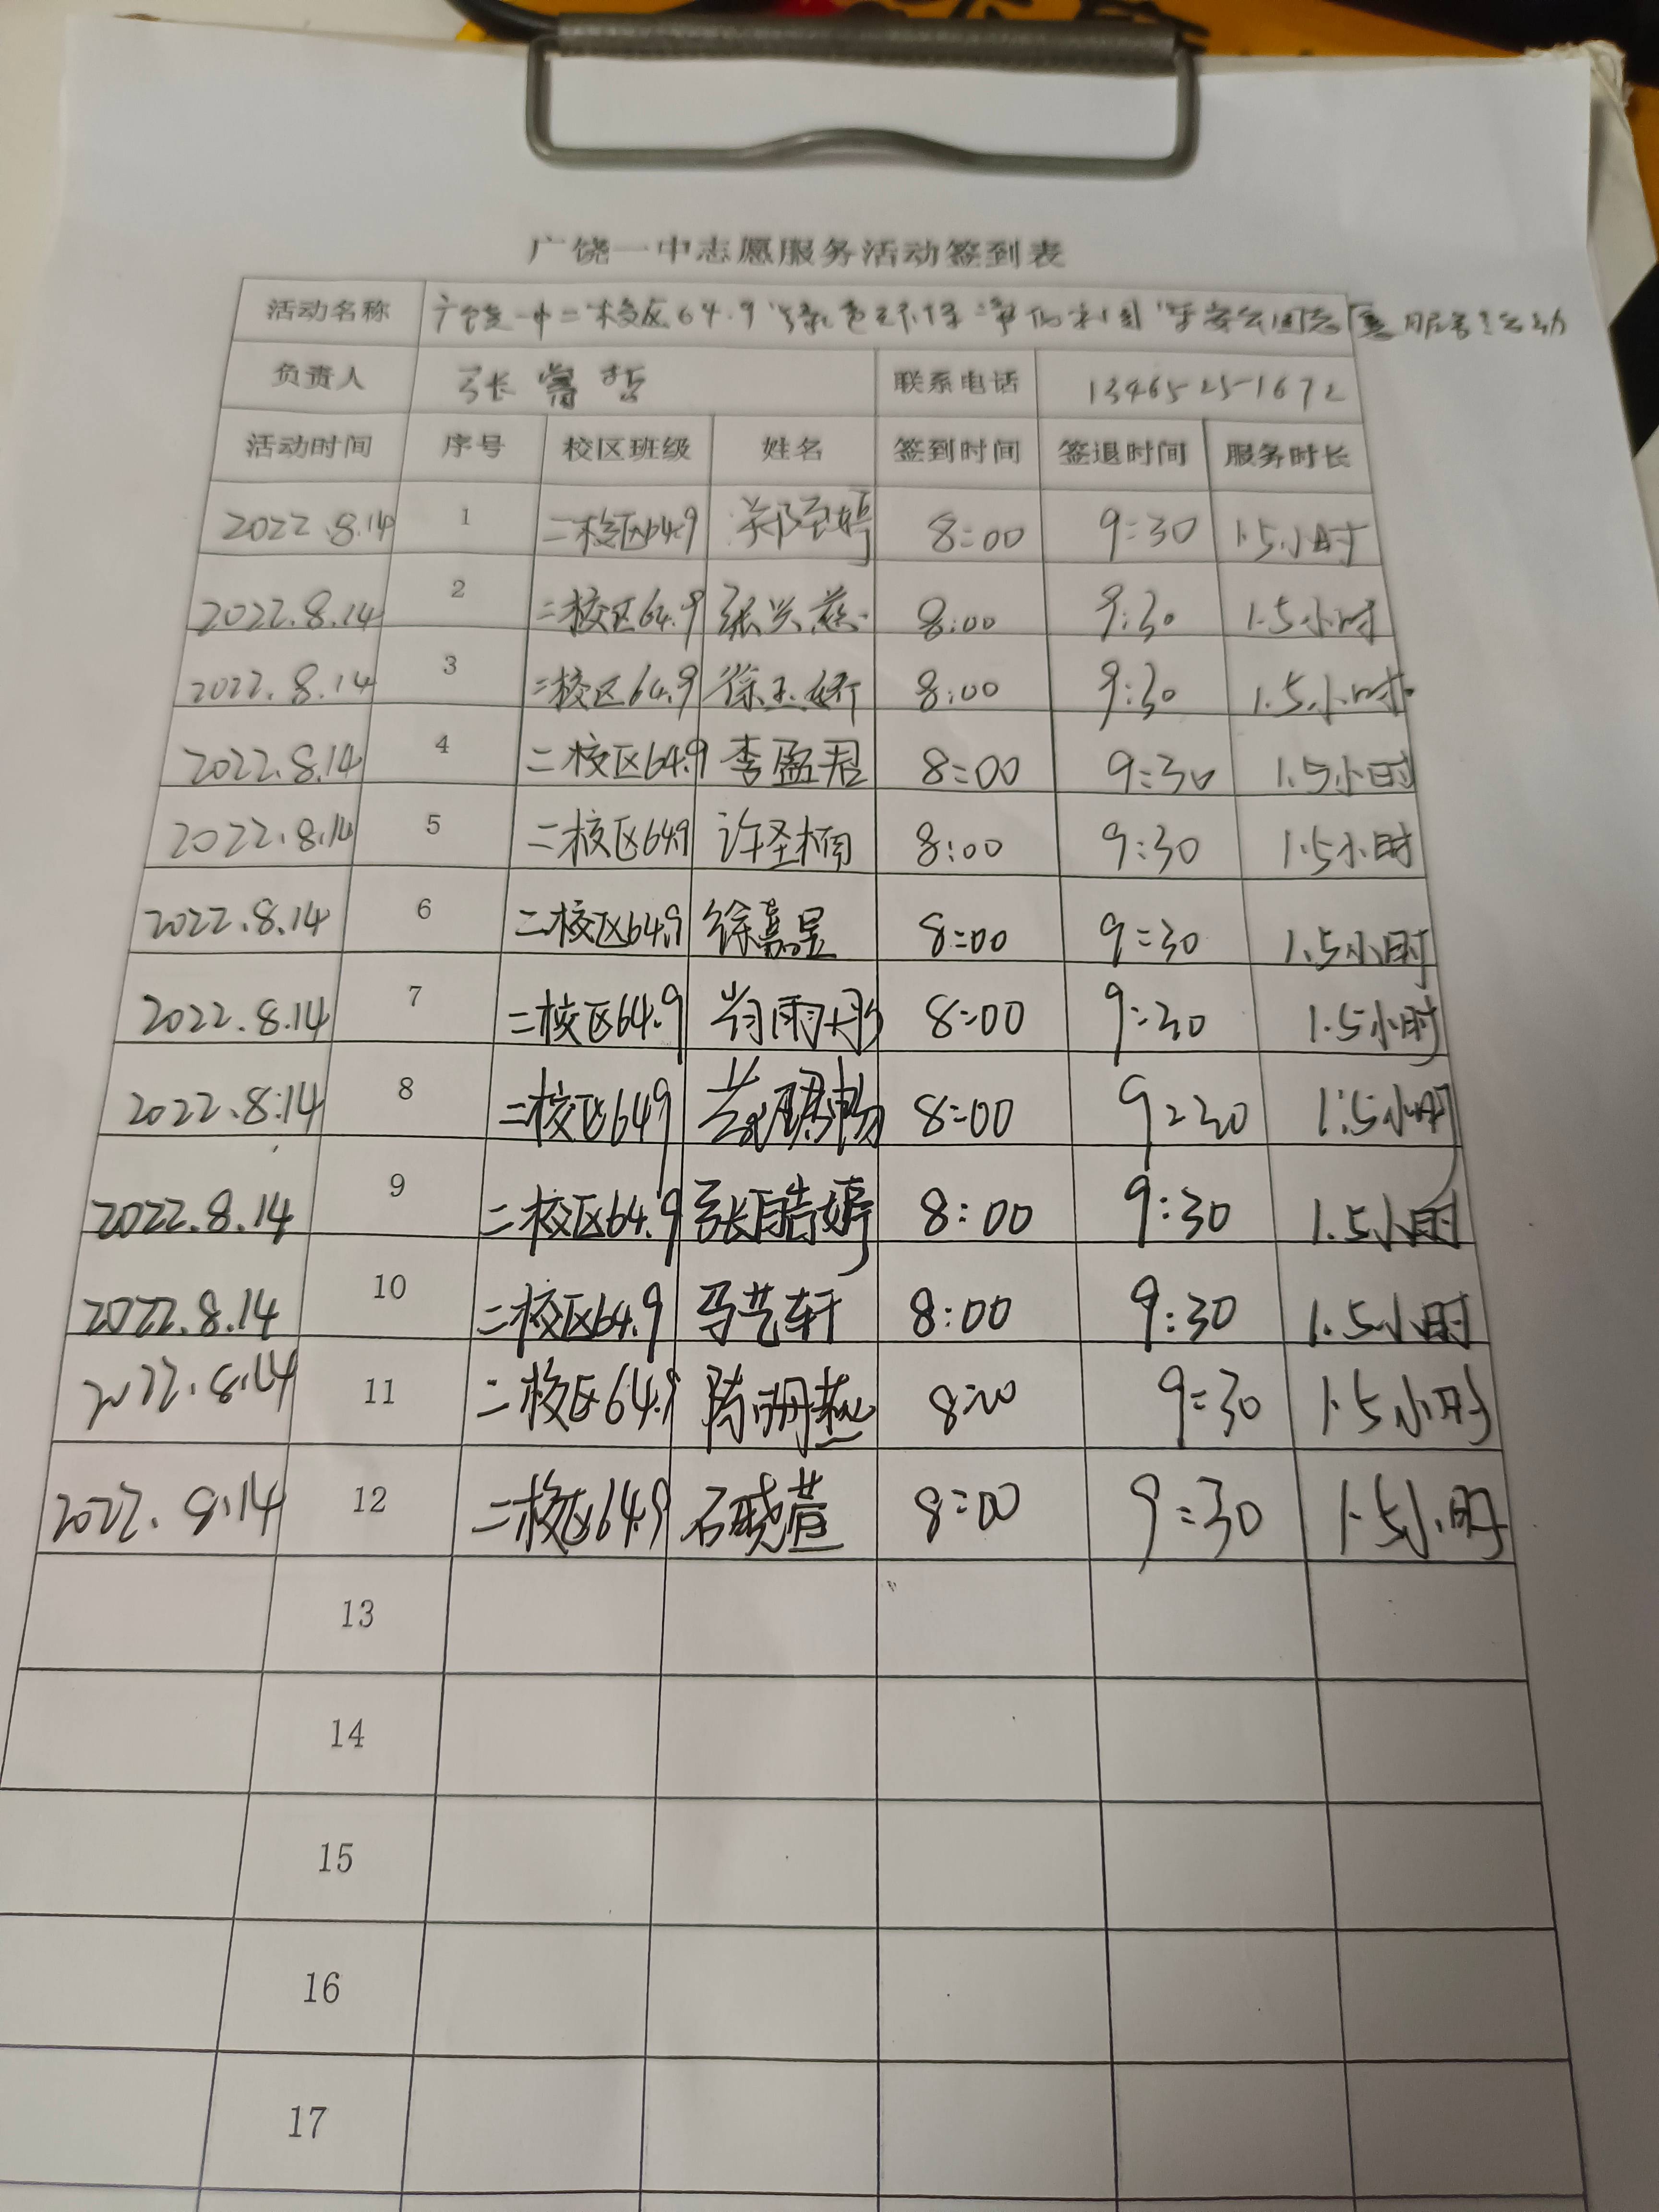 广饶一中志愿服务活动签到表
活动名称 广饶一中二校区64.9"绿色环保 净化校园"乐安公园志愿服务活动
负责人 张 哲 联系电话 13465251672
活动时间 序号 校区班级 姓名 签到时间 签退时间 服务时长
2022.8.14 1 二校区64.9 郑圣婷 8:00 9:30 1.5小时
2022.8.14 2 二校区64.9 张兴慈 8:00 9:30 1.5小时
2022.8.14 3 二校区64.9 徐玉娇 8:00 9:30 1.5小时
2022.8.14 4 二校区64.9 李盈君 8:00 9:30 1.5小时
2022.8.14 5 二校区64.9 许圣楠 8:00 9:30 1.5小时
2022.8.14 6 二校区64.9 徐嘉昱 8:00 9:30 1.5小时
2022.8.14 7 二校区64.9 肖雨彤 8:00 9:30 1.5小时
2022.8.14 8 二校区64.9 8:00 9:30 1.5小时
2022.8.14 9 二校区64.9 张皓婷 8:00 9:30 1.5小时
2022.8.14 10 二校区64.9 马艺轩 8:00 9:30 1.5小时
2022.8.14 11 二校区64.9 陈珊燕 8:00 9:30 1.5小时
2022.8.14 12 二校区64.9 石晓萱 8:00 9:30 1.5小时
13
14
15
16
17